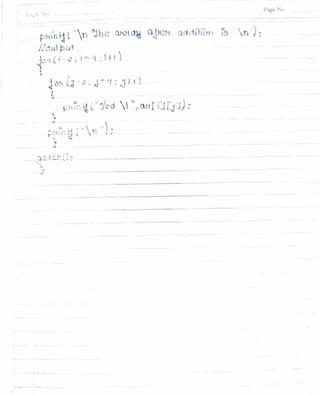 Page No
printf("\n The array after addition is \n");
//output
for(i=0; i<4; i++)
{
for(j=0; j<4; j++)
{
printf("%d \t", arr[i][j]);
}
printf("\n");
}
getch();
}